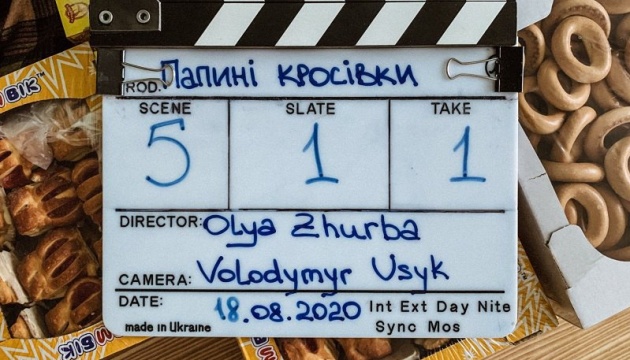 PROD. Папині кросівки
SCENE SLATE TAKE
5 1 1
DIRECTOR: Olya Zhurba
CAMERA: Volodymyr Usyk
DATE: 18.08.2020 Int Ext Day Nite
made in Ukraine Sync Mos